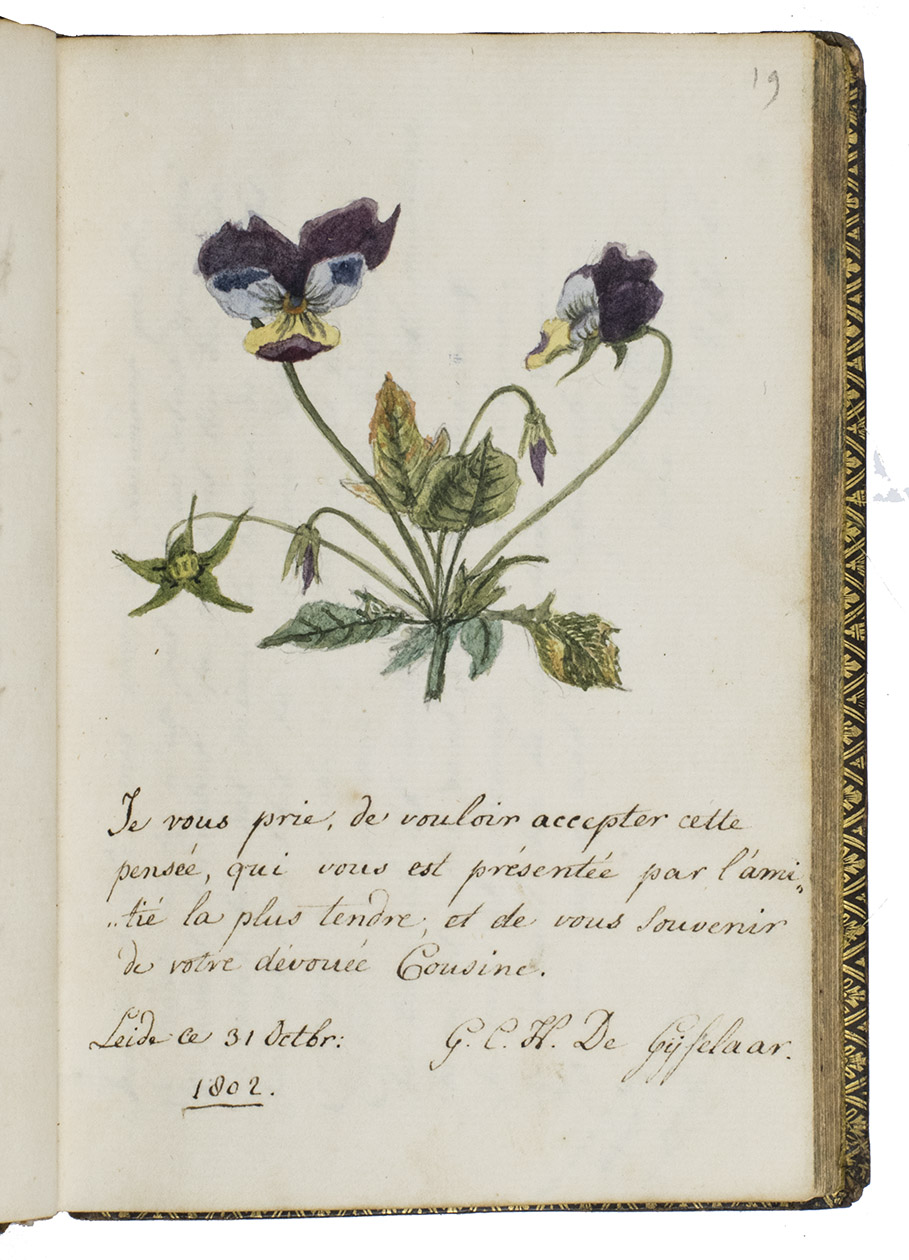 19
Je vous prie, de vouloir accepter cette
penseé, qui vous est présenteé par l'ami„
„tié la plus tendre, et de vous souvenir
de votre dévoueé Cousine.
Leide ce 31 Octbr: G. C. H. De Gÿselaar.
1802.